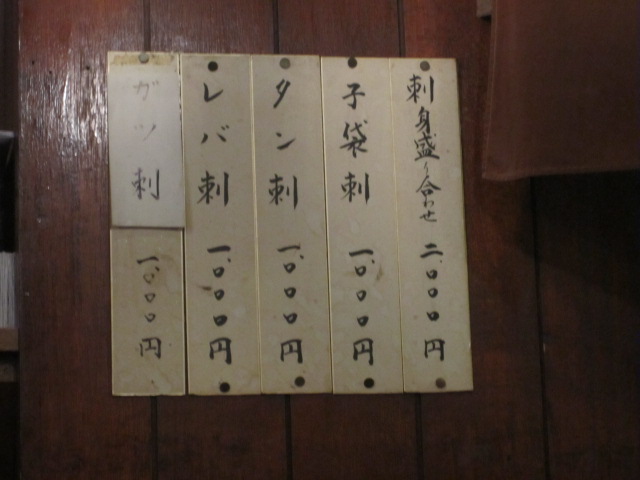 刺身盛り合わせ 二、〇〇〇円
子袋刺 一、〇〇〇円
タン刺 一、〇〇〇円
レバ刺 一、〇〇〇円
ガツ刺 一、〇〇〇円